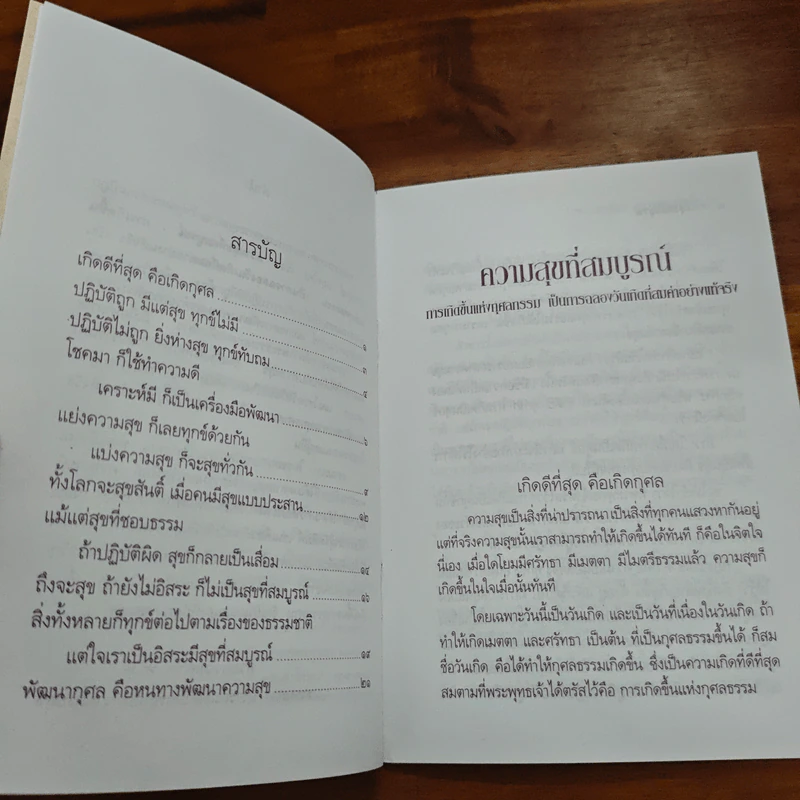 สารบัญ
เกิดดีที่สุด คือเกิดกุศล ๑
ปฏิบัติถูก มีแต่สุข ทุกข์ไม่มี ๓
ปฏิบัติไม่ถูก ยิ่งห่างสุข ทุกข์ทับถม ๕
โชคมา ก็ใช้ทำความดี
เคราะห์มี ก็เป็นเครื่องมือพัฒนา ๖
แย่งความสุข ก็เลยทุกข์ด้วยกัน
แบ่งความสุข ก็จะสุขทั่วกัน ๙
ทั้งโลกจะสุขสันติ์ เมื่อคนมีสุขแบบประสาน ๑๒
แม้แต่สุขที่ชอบธรรม
ถ้าปฏิบัติผิด สุขก็กลายเป็นเสื่อม ๑๔
ถึงจะสุข ถ้ายังไม่อิสระ ก็ไม่เป็นสุขที่สมบูรณ์ ๑๖
สิ่งทั้งหลายก็ทุกข์ต่อไปตามเรื่องของธรรมชาติ
แต่ใจเราเป็นอิสระมีสุขที่สมบูรณ์ ๑๙
พัฒนากุศล คือหนทางพัฒนาความสุข ๒๑
ความสุขที่สมบูรณ์
การเกิดขึ้นแห่งกุศลธรรม เป็นการฉลองวันเกิดที่สมค่าอย่างแท้จริง
เกิดดีที่สุด คือเกิดกุศล
ความสุขเป็นสิ่งที่น่าปรารถนา เป็นสิ่งที่ทุกคนแสวงหากันอยู่
แต่ที่จริงความสุขนั้นเราสามารถทำให้เกิดขึ้นได้ทันที ก็คือในจิตใจ
นี่เอง เมื่อใดโยมมีศรัทธา มีเมตตา มีไมตรีธรรมแล้ว ความสุขก็
เกิดขึ้นในใจเมื่อนั้นทันที
โดยเฉพาะวันนี้เป็นวันเกิด และเป็นวันที่เนื่องในวันเกิด ถ้า
ทำให้เกิดเมตตา และศรัทธา เป็นต้น ที่เป็นกุศลธรรมขึ้นได้ ก็สม
ชื่อวันเกิด คือได้ทำให้กุศลธรรมเกิดขึ้น ซึ่งเป็นความเกิดที่ดีที่สุด
สมตามที่พระพุทธเจ้าได้ตรัสไว้คือ การเกิดขึ้นแห่งกุศลธรรม